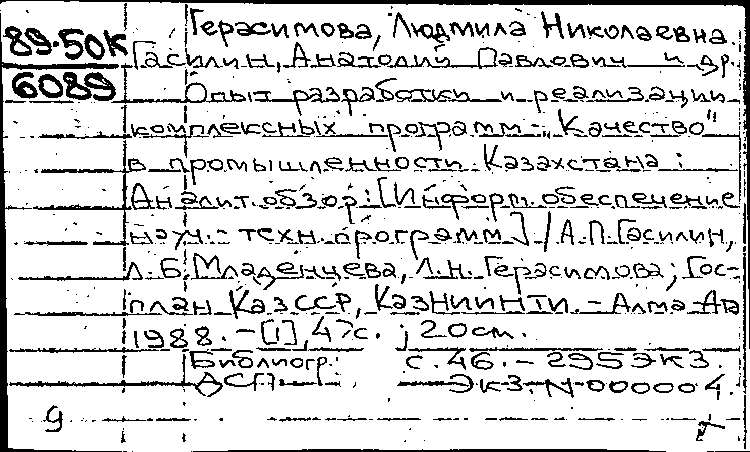 89-50К
6089
Герасимова, Людмила Николаевна.
Гасилин, Анатолий Павлович и др.
Опыт разработки и реализации
комплексных программ „Качество"
в промышленности Казахстана:
Аналит. обзор: [Информ. обеспечение
науч.-техн. программ] / А.П. Гасилин,
Л.Б. Младенцева, Л.Н. Герасимова; Гос-
план КазССР, КазНИИНТИ. - Алма-Ата
1988. - [1], 47с. ; 20см.
Библиогр.: с.46. - 295 экз.
ДСП. Экз. N 000004.
9